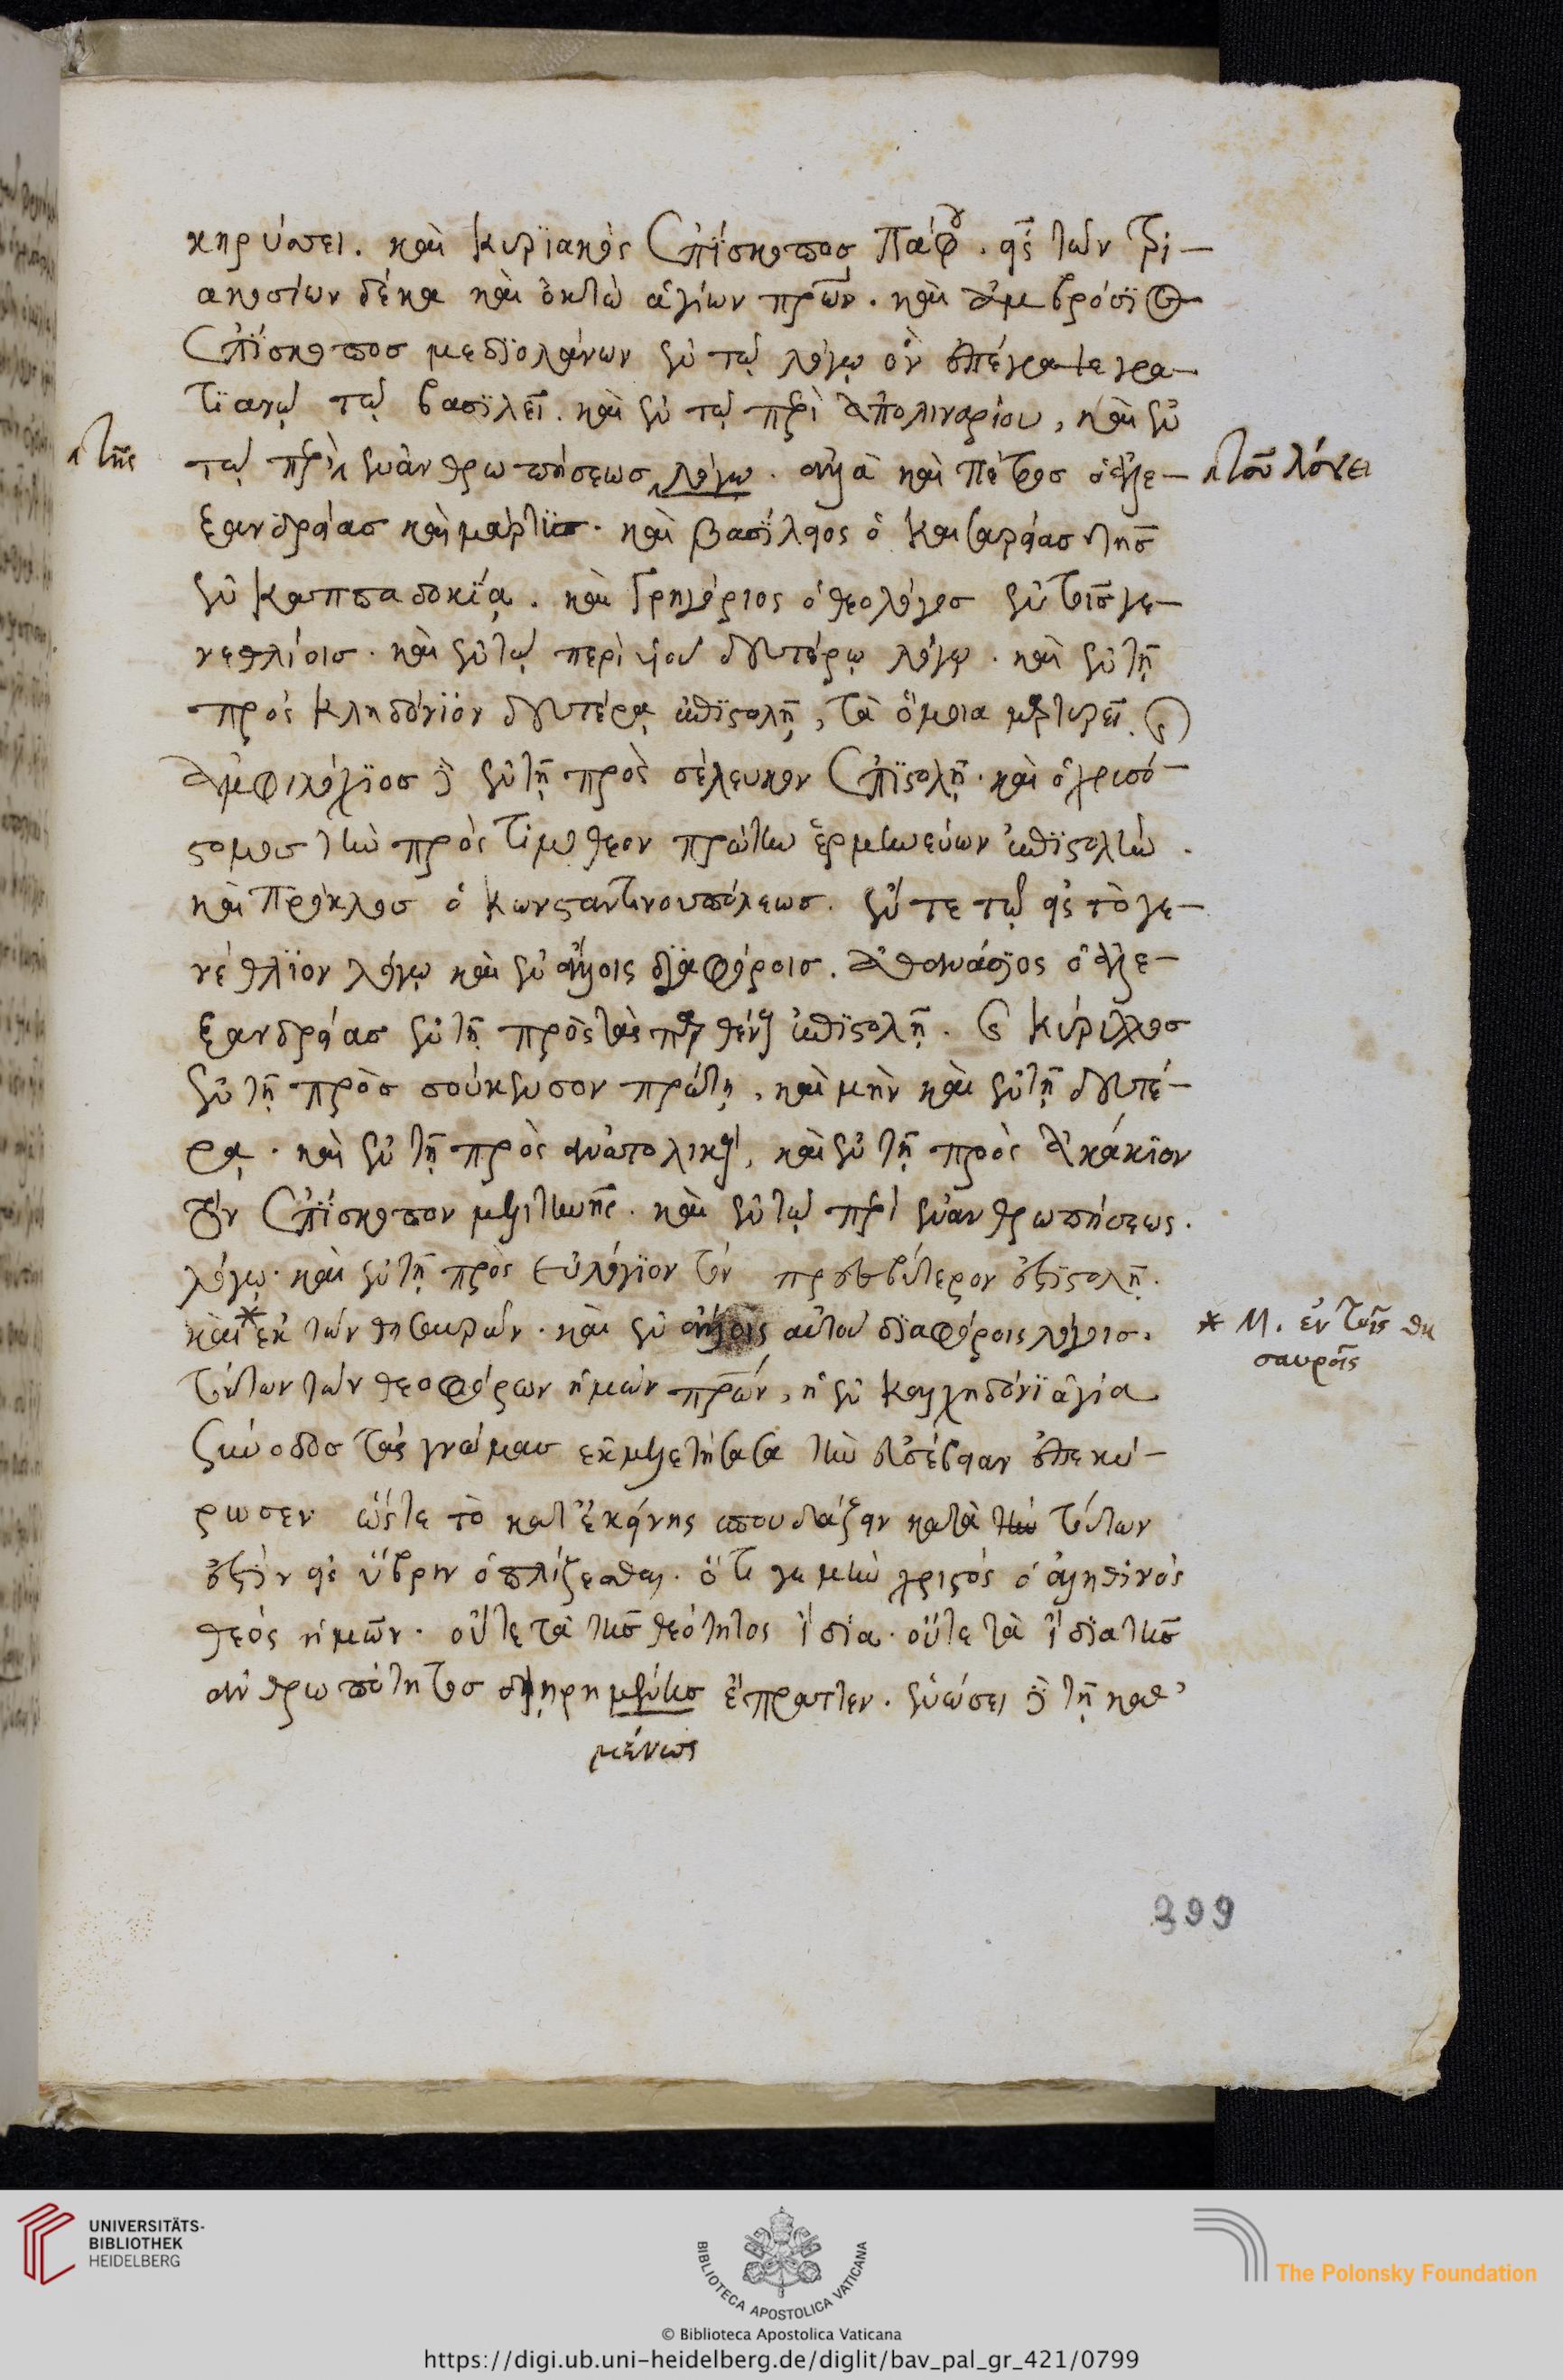 κηρύττει. καὶ Κυριακὸς ἐπίσκοπος Πάφου. εἷς τῶν τρι-
ακοσίων δέκα καὶ ὀκτὼ ἁγίων πρων. καὶ ἀμβρόσιος
ἐπίσκοπος μεδιολάνων ἐν τῷ λόγῳ ὃν ἐπέγραψε γρα-
τιανῷ τῷ βασιλεῖ. καὶ ἐν τῷ περὶ ἀπολιναρίου, καὶ ἐν
τῆς
τῷ περὶ ἐνανθρωπήσεως λόγῳ. ἀλλὰ καὶ Πέτρος ὁ ἀλε-
τοῦ λόγει
ξανδρείας καὶ μάρτυς. καὶ βασίλειος ὁ Καισαρείας τῆς
ἐν Καππαδοκίᾳ. καὶ Γρηγόριος ὁ θεολόγος ἐν τοῖς γε-
νεθλίοις. καὶ ἐν τῷ περὶ υἱοῦ δευτέρῳ λόγῳ. καὶ ἐν τῇ
πρὸς Κληδόνιον δευτέρᾳ ἐπιστολῇ, τὰ ὅμοια μαρτυρεῖ. καὶ
ἀμφιλόχιος δὲ ἐν τῇ πρὸς σέλευκον ἐπιστολῇ. καὶ ὁ χρυσό-
στομος τὴν πρὸς τιμόθεον πρώτην ἑρμηνεύων ἐπιστολήν.
καὶ Πρόκλος ὁ Κωνσταντινουπόλεως. ἔν τε τῷ εἰς τὸ γε-
νέθλιον λόγῳ καὶ ἐν ἄλλοις διαφόροις. ἀθανάσιος ὁ ἀλε-
ξανδρείας ἐν τῇ πρὸς τὰς παρθένους ἐπιστολῇ. καὶ Κύριλλος
ἐν τῇ πρὸς σούκενσον πρώτῃ, καὶ μὴν καὶ ἐν τῇ δευτέ-
ρᾳ. καὶ ἐν τῇ πρὸς ἀνατολικούς, καὶ ἐν τῇ πρὸς ἀκάκιον
τὸν ἐπίσκοπον μελιτηνῆς. καὶ ἐν τῷ περὶ ἐνανθρωπήσεως.
λόγῳ. καὶ ἐν τῇ πρὸς εὐλόγιον τὸν πρεσβύτερον ἐπιστολῇ.
καὶ * ἐκ τῶν θησαυρῶν. καὶ ἐν ἄλλοις αὐτοῦ διαφόροις λόγοις.
* Μ. ἐν τοῖς θη
σαυροῖς
τούτων τῶν θεοφόρων ἡμῶν πρων, ἡ ἐν Καλχηδόνι ἁγία
σύνοδος τὰς γνώμας ἐκμελετήσασα τὴν εὐσέβειαν ἐπεκύ-
ρωσεν ὥστε τὸ κατ' ἐκείνης σπουδάζειν κατὰ τὴν τούτων
ἐστὶν εἰς ὕβριν ὁπλίζεσθαι. ὅτι γε μὴν χριστὸς ὁ ἀληθινὸς
θεὸς ἡμῶν. οὔτε τὰ τῆς θεότητος ἴδια. οὔτε τὰ ἴδια τῆς
ἀνθρωπότητος διῃρημένης ἔπραττεν. ἑνώσει δὲ τῇ καθ'
μένως
399
UNIVERSITÄTS-
BIBLIOTHEK
HEIDELBERG
BIBLIOTECA APOSTOLICA VATICANA
The Polonsky Foundation
© Biblioteca Apostolica Vaticana
https://digi.ub.uni-heidelberg.de/diglit/bav_pal_gr_421/0799